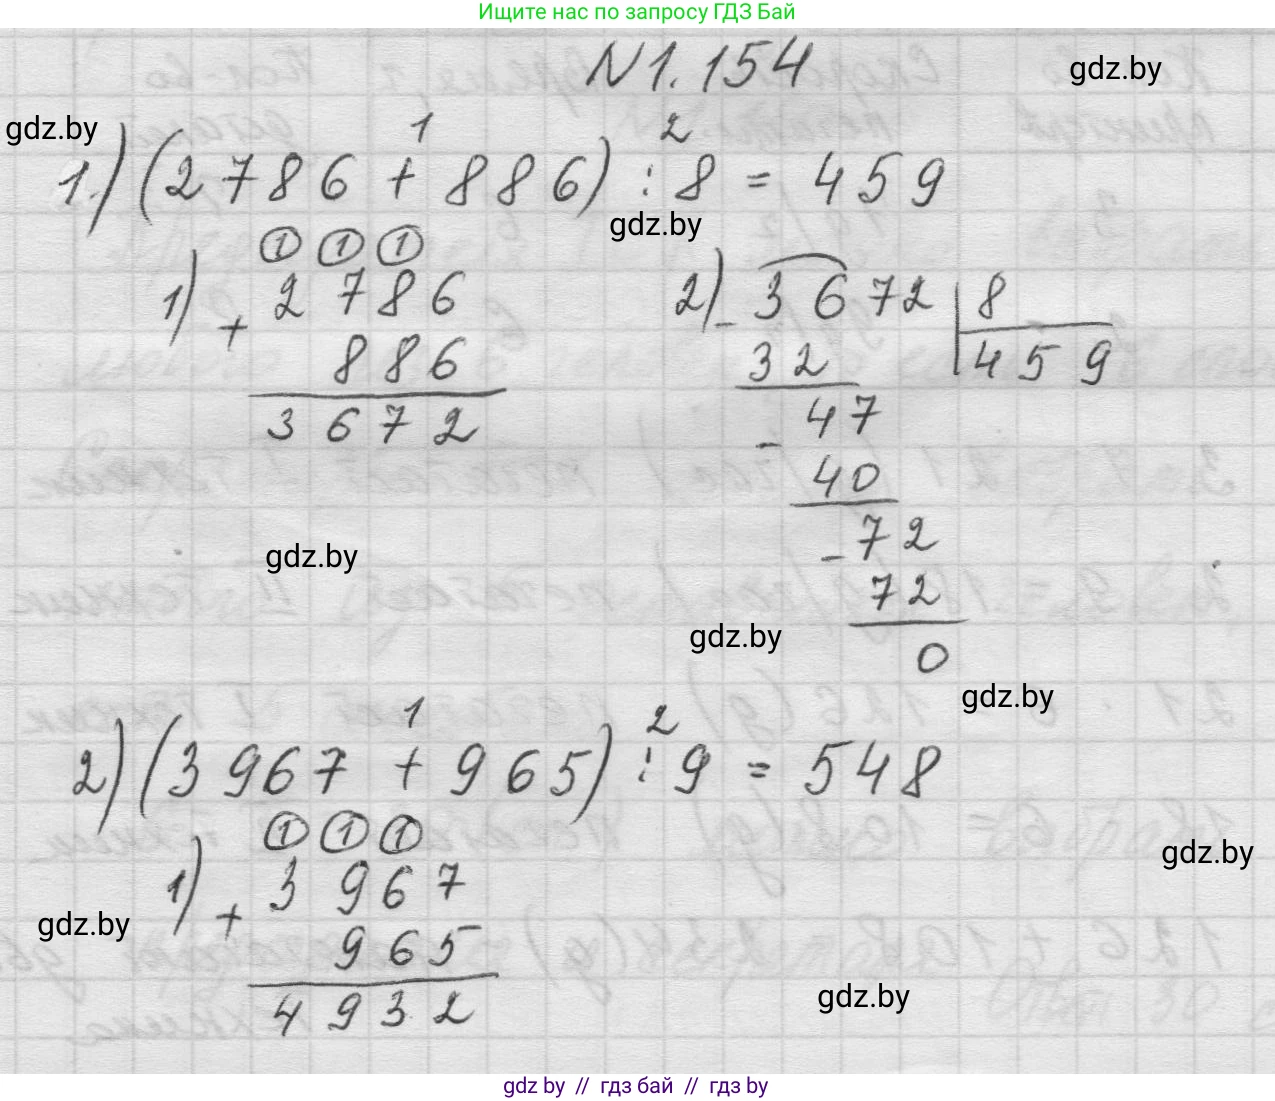 Ищите нас по запросу ГДЗ Бай
N 1.154
gdz.by
gdz.by
1 2
1.) (2786 + 886) : 8 = 459
gdz.by
1 1 1
1) + 2786
886
3672
2) - 3672 | 8
32 459
- 47
40
- 72
72
0
gdz.by
gdz.by
gdz.by
1 2
2) (3967 + 965) : 9 = 548
1 1 1
1) + 3967
965
4932
gdz.by
gdz.by
gdz.by
gdz by // гдз бай // гдз by